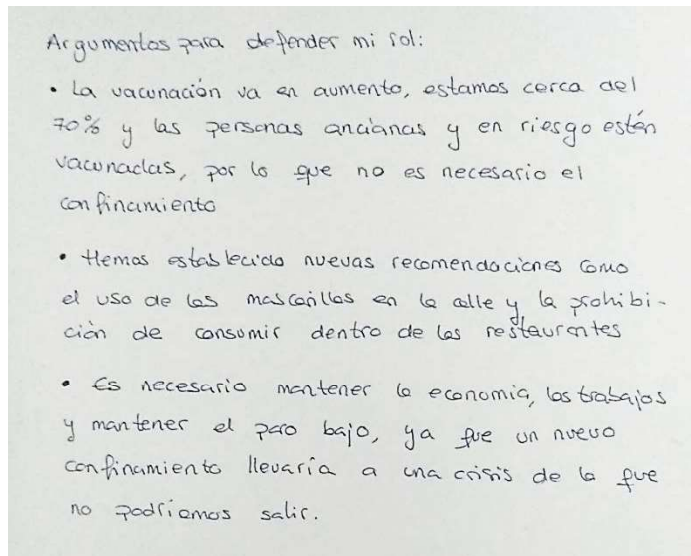 Argumentos para defender mi rol:
• La vacunación va en aumento, estamos cerca del
70% y las personas ancianas y en riesgo están
vacunadas, por lo que no es necesario el
confinamiento
• Hemos establecido nuevas recomendaciones como
el uso de las mascarillas en la calle y la prohibi-
ción de consumir dentro de los restaurantes
• Es necesario mantener la economia, los trabajos
y mantener el paro bajo, ya que un nuevo
confinamiento llevaría a una crisis de la que
no podríamos salir.